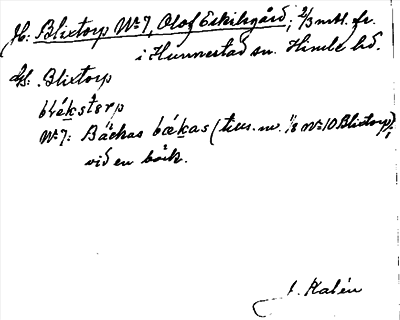 H: Blixtorp No 7, Olof Eskilsgård; 2/3 mtl. fr.
i Hunnestad sn. Himle hd.
Blixtorp
No 7: Backas bækas (tills. m. 1/8 No 10 Blixtorp);
vid en bäck.
J. Kalén